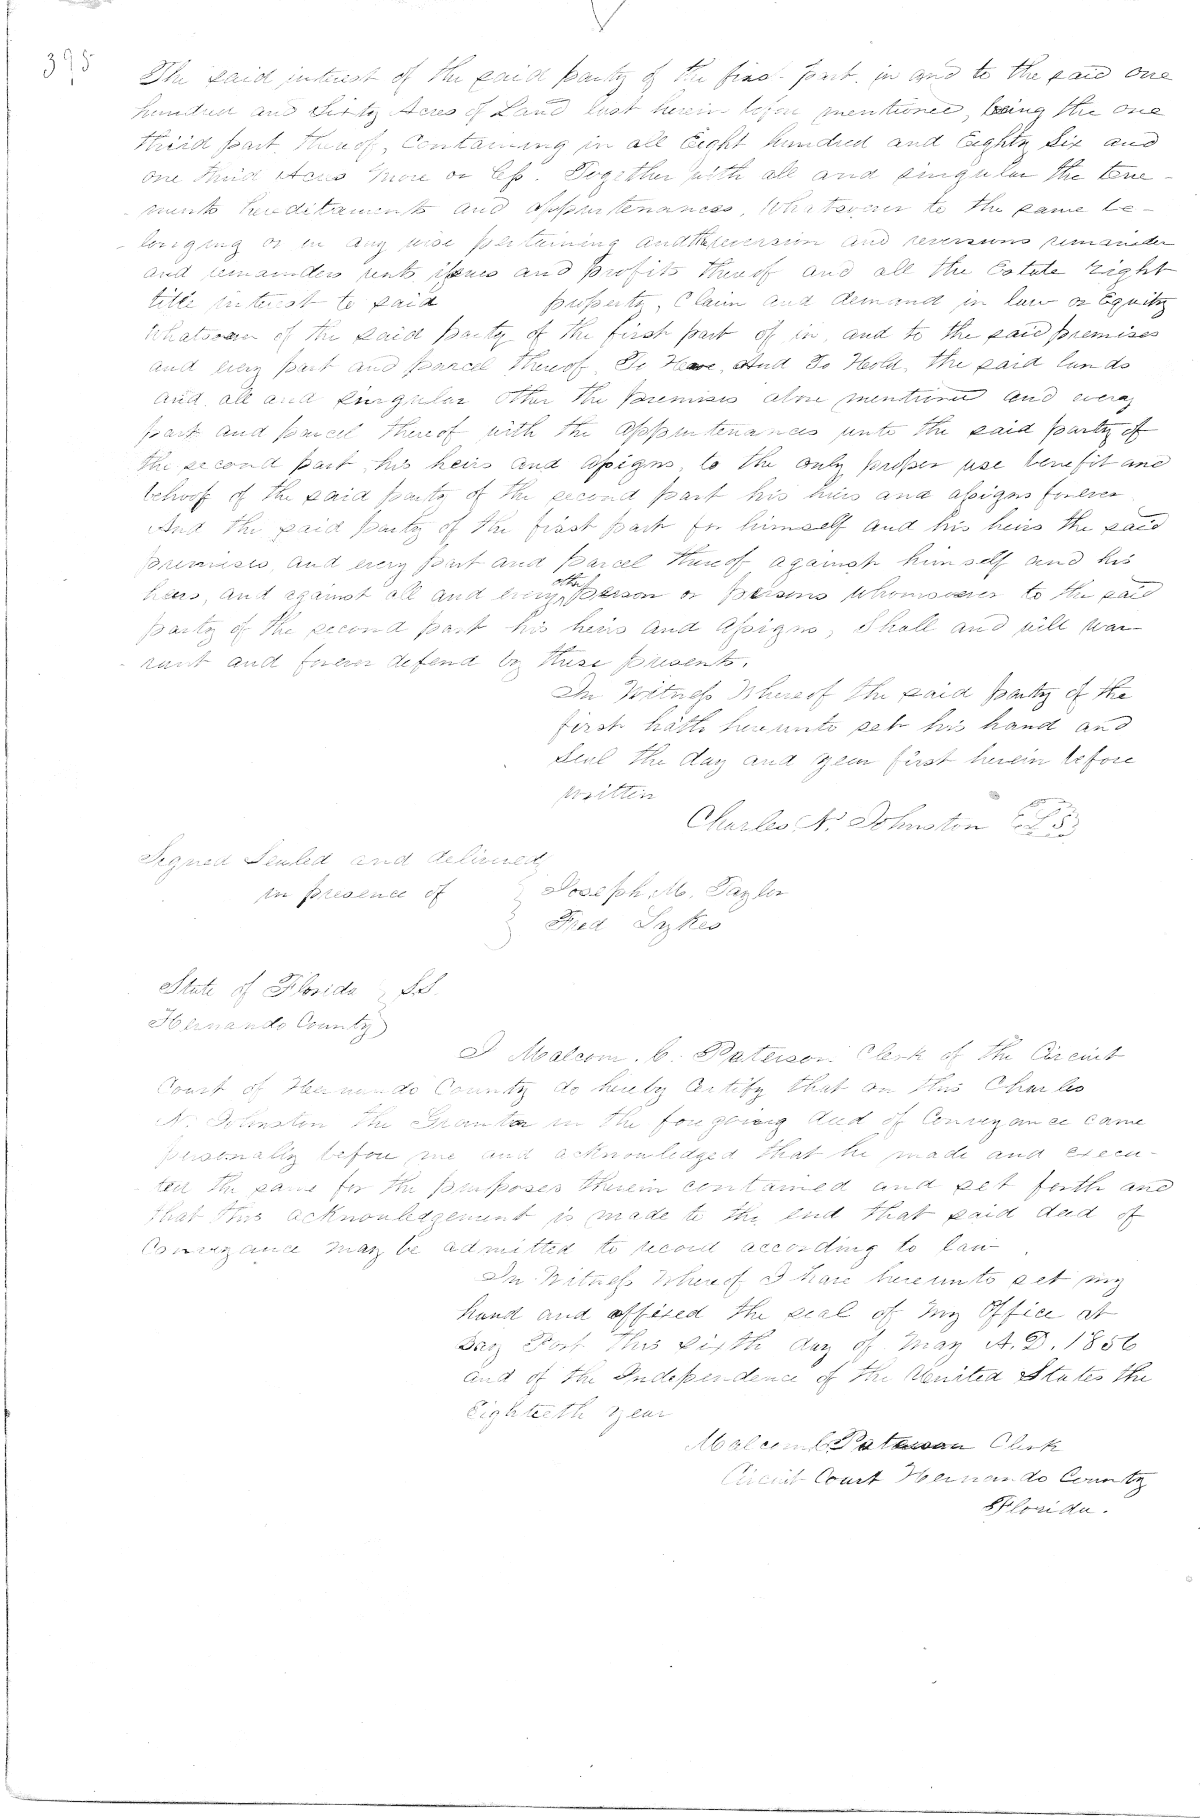 395
The said interest of the said party of the first part. in and to the said one
hundred and Sixty Acres of Land last herein before mentioned, being the one
third part thereof, Containing in all Eight hundred and Eighty Six and
one third Acres more or less. Together with all and singular the tene-
ments hereditaments and appurtenances, Whatsoever to the same be-
longing or in any wise pertaining and the reversion and reversions remainder
and remainders rents issues and profits thereof and all the Estate right
title interest to said property, Claim and demand in law or Equity
Whatsoever of the said party of the first part of in, and to the said premises
and every part and parcel thereof. To Have, And To Hold, the said lands
and all and singular other the premises above mentioned and every
part and parcel thereof with the appurtenances unto the said party of
the second part, his heirs and assigns, to the only proper use benefit and
behoof of the said party of the second part his heirs and assigns forever
And the said party of the first part for himself and his heirs the said
premises, and every part and parcel thereof against himself and his
heirs, and against all and every other person or persons whomsoever to the said
party of the second part his heirs and assigns, Shall and will war-
rant and forever defend by these presents.
In Witness Whereof the said party of the
first hath hereunto set his hand and
Seal the day and year first herein before
written
Charles N. Johnston L S
Signed Sealed and delivered
in presence of
Joseph. M. Taylor
Fred Sykes
State of Florida S.S.
Hernando County
I Malcom. C. Paterson Clerk of the Circuit
Court of Hernando County do hereby Certify that on this Charles
N. Johnston the Grantor in the foregoing deed of Conveyance came
personally before me and acknowledged that he made and execu-
ted the same for the purposes therein contained and set forth and
that this acknowledgement is made to the end that said deed of
Conveyance may be admitted to record according to law.
In Witness Whereof I have hereunto set my
hand and affixed the seal of my Office at
Bay Port this sixth day of May A.D. 1856
and of the Independence of the United States the
Eightieth year
Malcom C. Paterson Clerk
Circuit Court Hernando County
Florida.